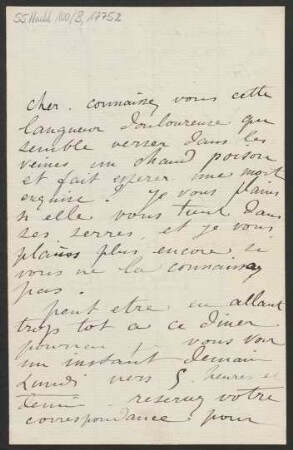 55 Nachl 100/B, 17752
cher. connaissez vous cette
langueur douloureuse qui
semble verser dans les
veines un chaud poison
et fait esperer une mort
exquise? Je vous plains
si elle vous tient dans
ses serres, et je vous
plains plus encore si
vous ne la connaissez
pas.
peut etre en allant
trop tot a ce diner
pourrai j. vous voir
un instant demain
Lundi vers 5 heures et
demi reservez votre
correspondance pour